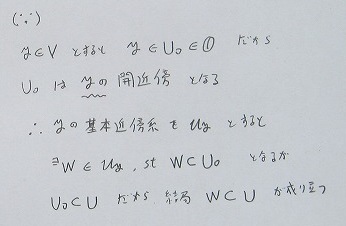 (∵)
y∈V とすると y∈U₀∈𝒪 だから
U₀ は yの 開近傍 となる
∴ yの基本近傍系を 𝒰y とすると
∃W∈𝒰y, st W⊂U₀ となるが
U₀⊂U だから 結局 W⊂U が成り立つ